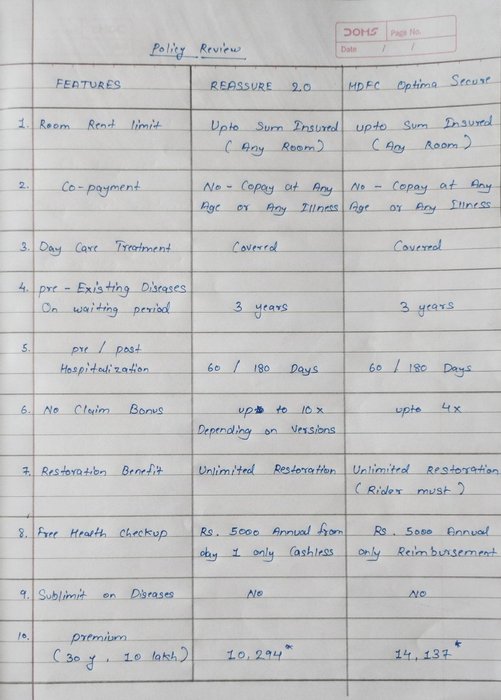 DOMS Page No.
Date / /
Policy Review
FEATURES REASSURE 2.0 HDFC Optima Secure
1. Room Rent limit Upto Sum Insured upto Sum Insured
(Any Room) (Any Room)
2. Co-payment No - Copay at Any No - Copay at Any
Age or Any Illness Age or Any Illness
3. Day Care Treatment Covered Covered
4. pre - Existing Diseases
On waiting period 3 years 3 years
5. pre / post
Hospitalization 60 / 180 Days 60 / 180 Days
6. No Claim Bonus upto to 10x upto 4x
Depending on Versions
7. Restoration Benefit Unlimited Restoration Unlimited Restoration
(Rider must)
8. Free Health Checkup Rs. 5000 Annual from Rs. 5000 Annual
day 1 only Cashless only Reimbursement
9. Sublimit on Diseases No No
10. premium
(30 y, 10 lakh) 10,294* 14,137*